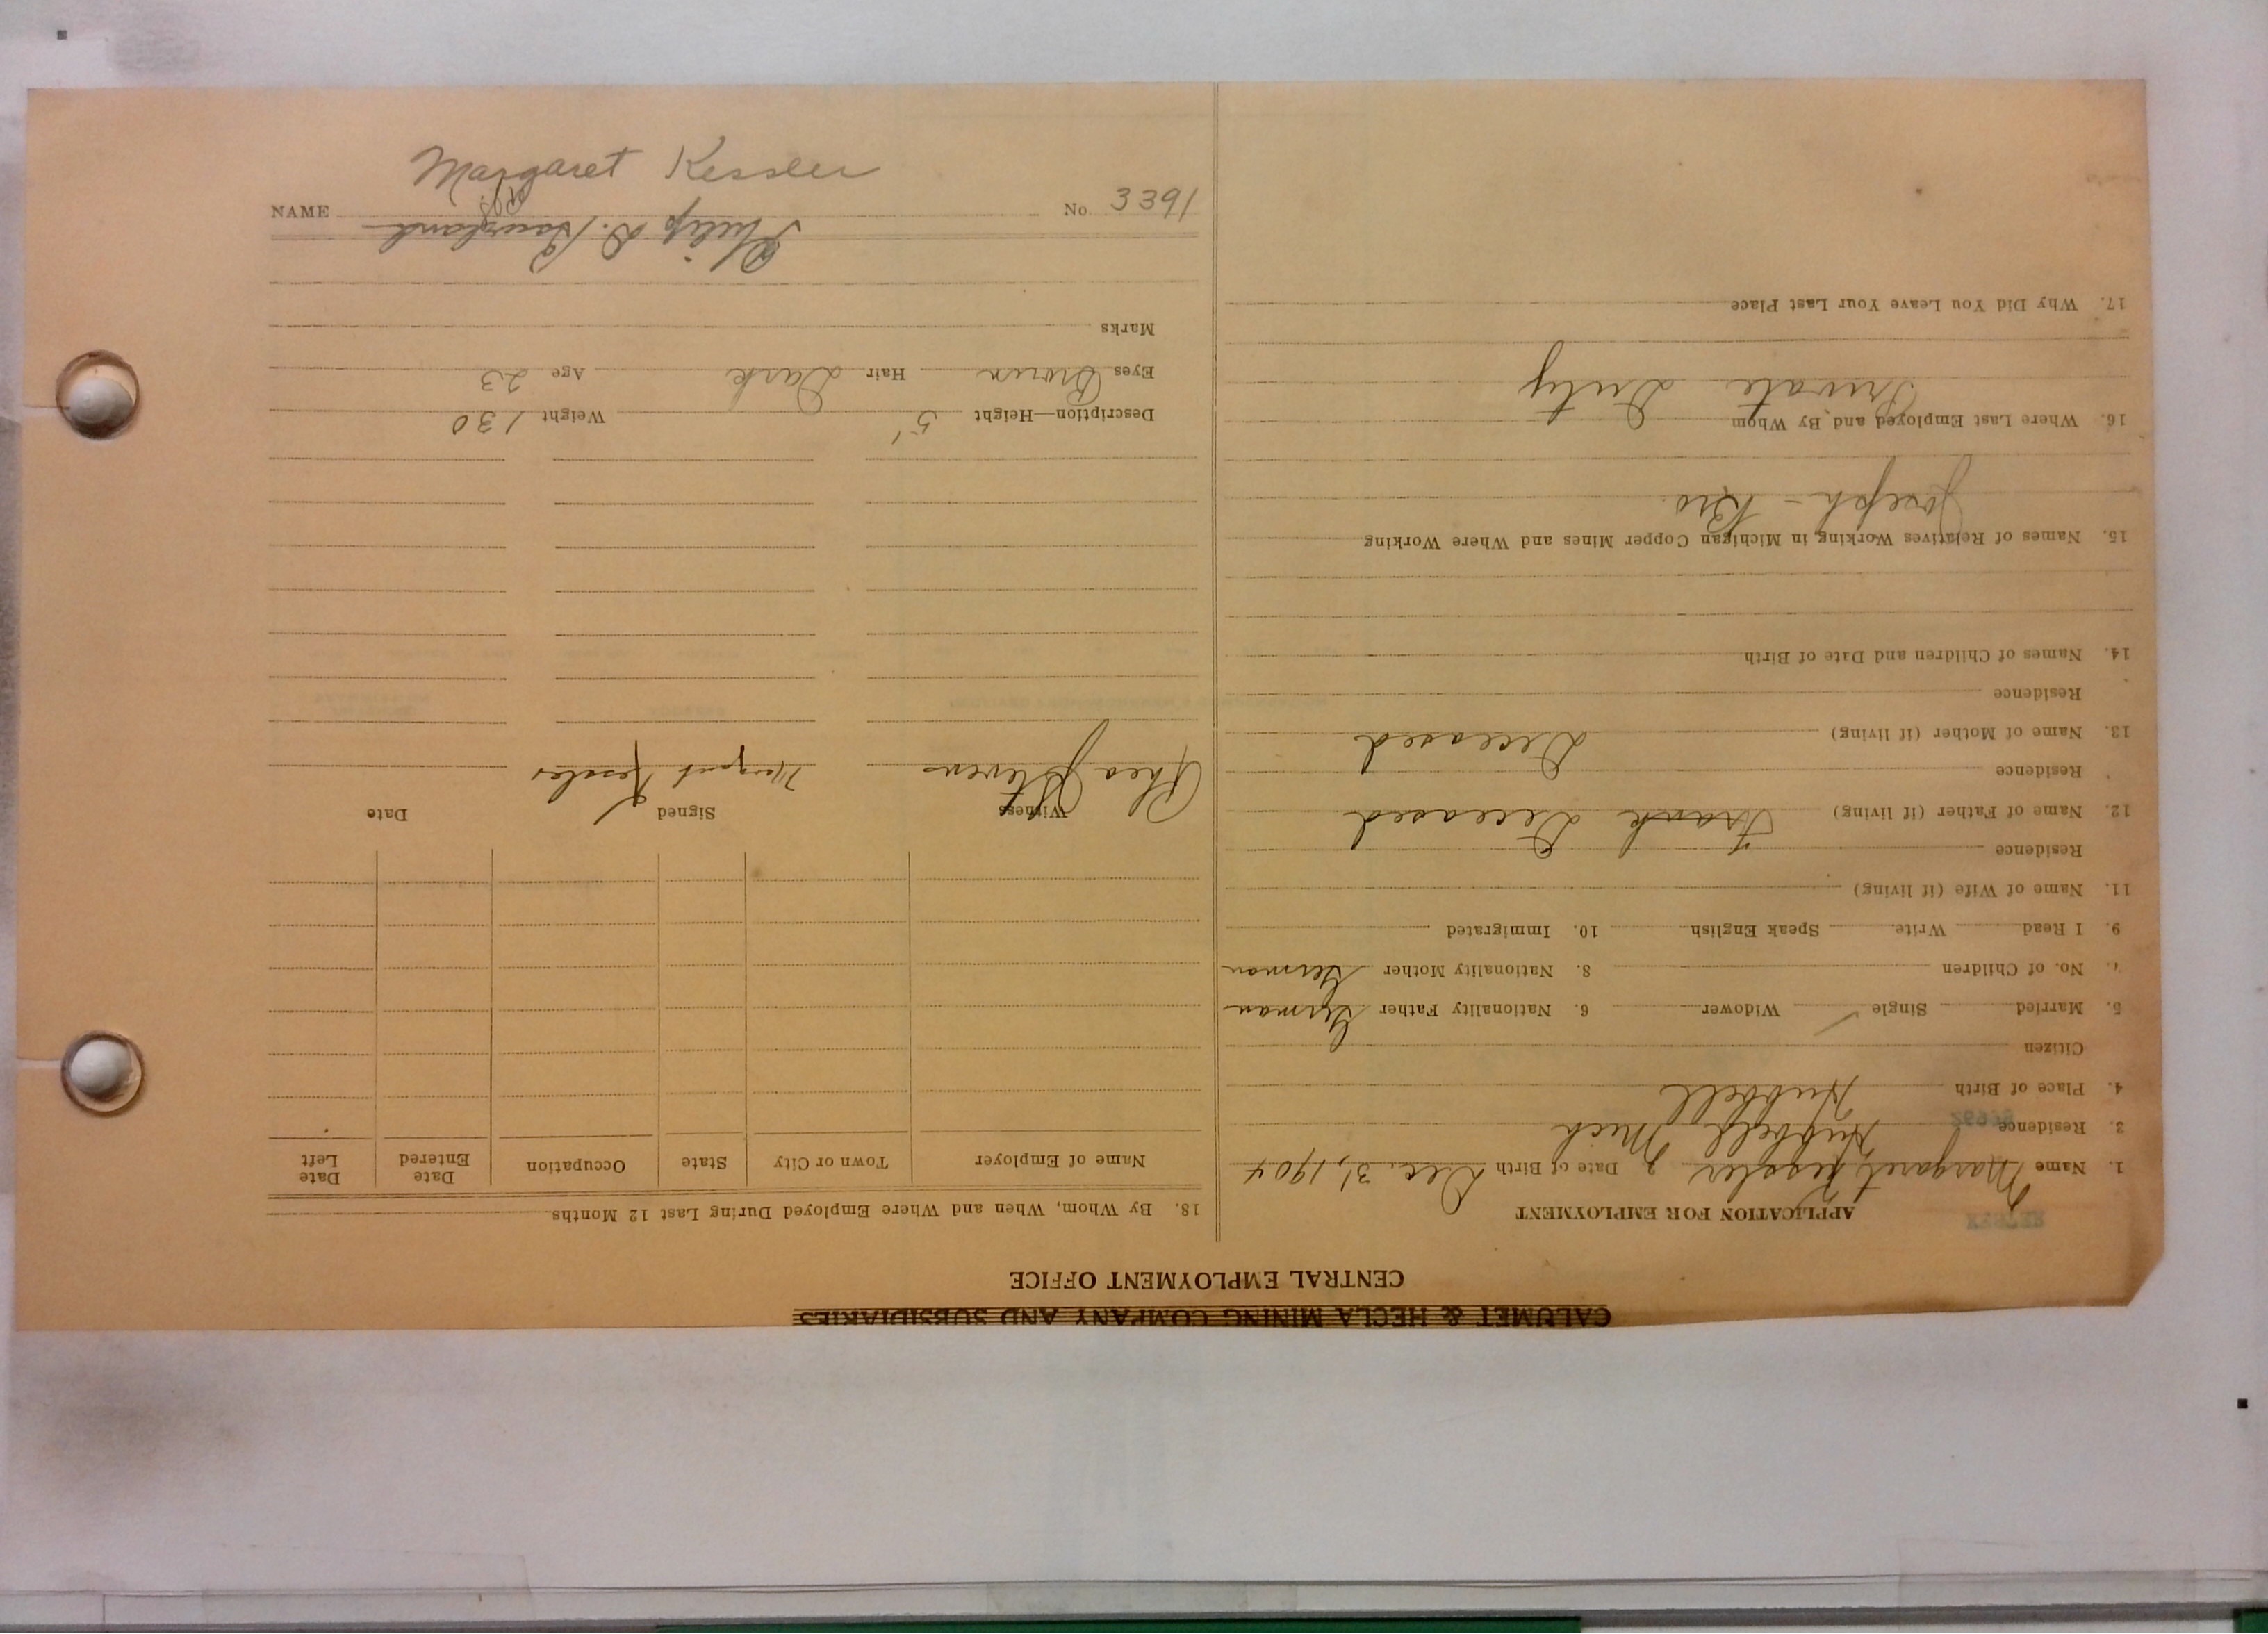 CALUMET & HECLA MINING COMPANY AND SUBSIDIARIES
CENTRAL EMPLOYMENT OFFICE
APPLICATION FOR EMPLOYMENT
1. Name Margaret Kessler 2. Date of Birth Dec. 31, 1904
3. Residence Hubbell Mich
4. Place of Birth Hubbell
Citizen
5. Married Single ✓ Widower 6. Nationality Father German
No. of Children 8. Nationality Mother German
9. I Read Write Speak English 10. Immigrated
11. Name of Wife (if living)
Residence
12. Name of Father (if living) Frank Deceased
Residence
13. Name of Mother (if living) Deceased
Residence
14. Names of Children and Date of Birth
15. Names of Relatives Working in Michigan Copper Mines and Where Working
Joseph - Bro.
16. Where Last Employed and By Whom
Private Duty
17. Why Did You Leave Your Last Place
18. By Whom, When and Where Employed During Last 12 Months
Name of Employer Town or City State Occupation Date Entered Date Left
Witness Signed Date
Rhea Stevens Margaret Kessler
Description—Height 5' Weight 130
Eyes Brown Hair Dark Age 23
Marks
Philip D.
NAME Margaret Kessler No. 3391